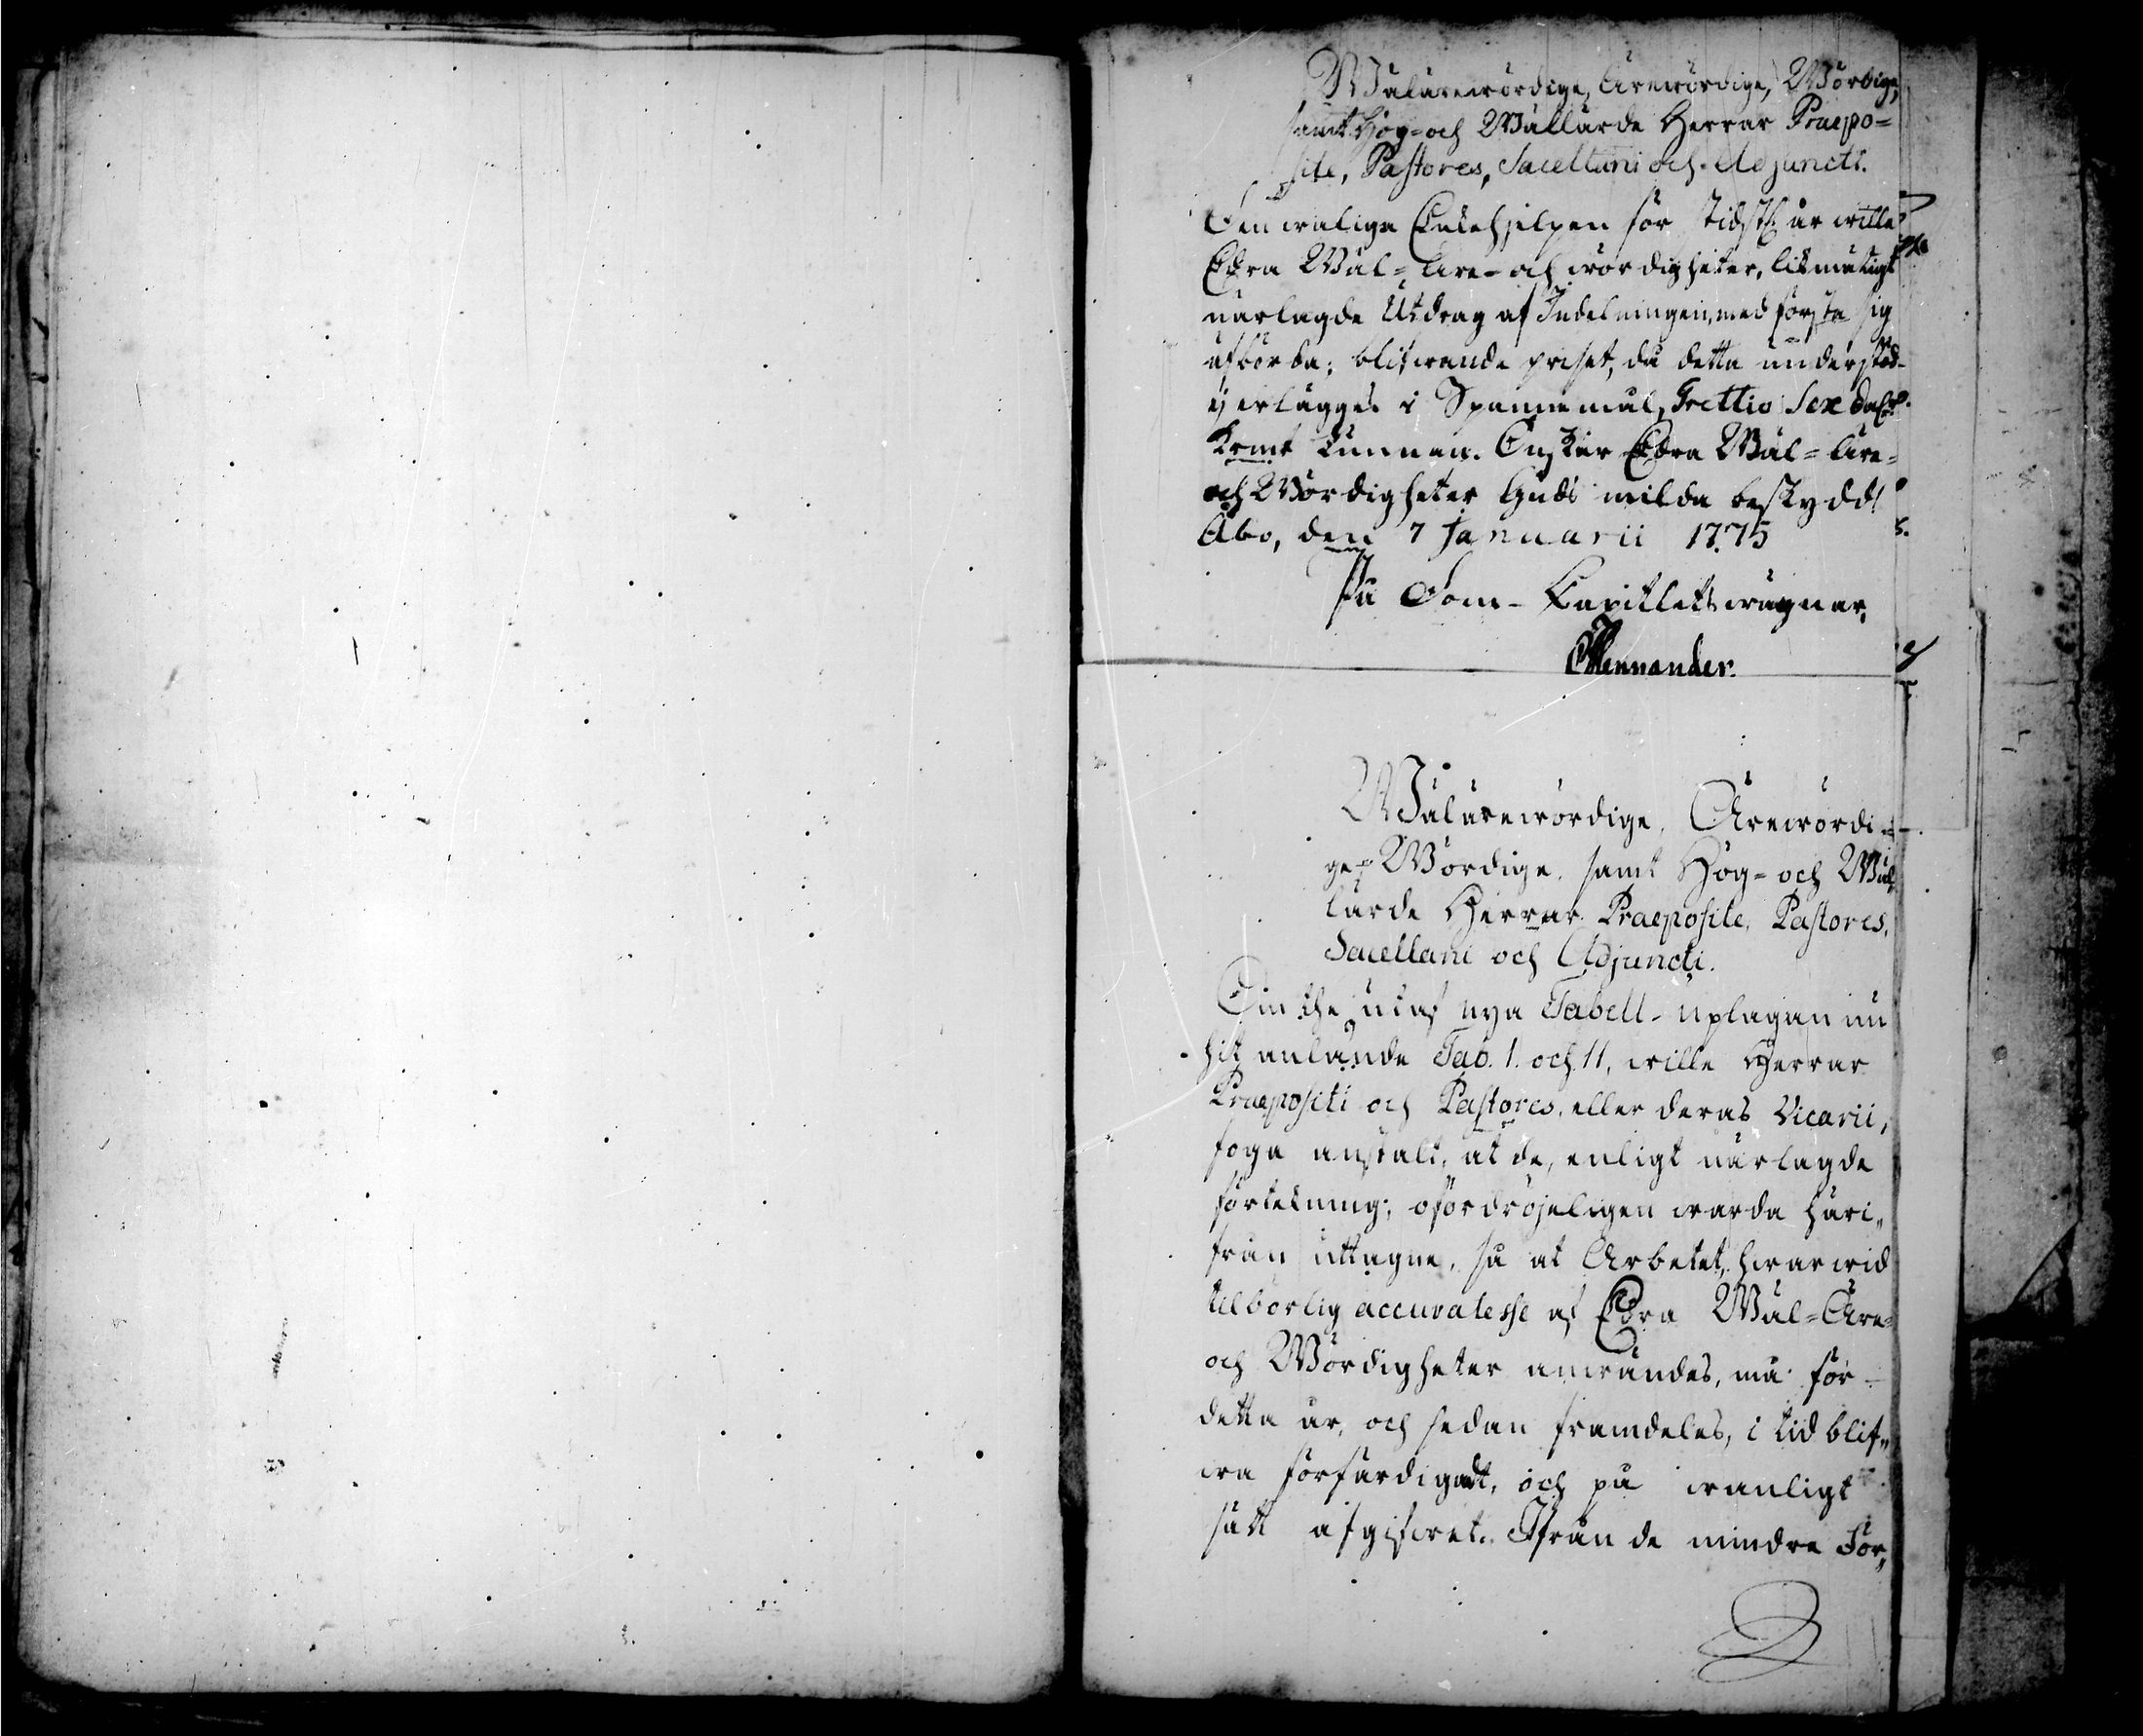 Wälärewördige, Ärewördige, Wördige,
samt Hög- och Wällärde Herrar Praepo=
siti, Pastores, Sacellani och Adjuncti.
Den wanliga Enkehjelpen för sidst. år wille
Edra Wäl= Äre- och wördigheter, likmätigt
närlagde Utdrag af Indelningen, med första sig
afbörda; blifwande priset, då detta understöd
ej erlägges i Spannemål, Trettio Sex dal.
kmt tunnan. Önskar Edra Wäl= Äre=
och Wördigheter Guds milda beskydd!
Åbo, den 7 Januarii 1775
På Dom-Kapitlets wägnar,
Mennander.
Wälärewördige, Ärewördi=
ge, Wördige, samt Hög= och Wäl
lärde Herrar Praepositi, Pastores,
Sacellani och Adjuncti.
Om the utaf nya Tabell-uplagan nu
hit anlände Tab. 1. och 11, wille Herrar
Praepositi och Pastores, eller deras Vicarii,
foga anstalt, at de, enligt närlagde
förtekning, ofördröjeligen warda häri„
från uttagne, så at Arbetet, hwarwid
tilbörlig accuratesse af Edra Wäl=Äre=
och Wördigheter användes, må för
detta år, och sedan framdeles, i tid blif„
wa förfärdigadt, och på wanligt
sätt afgifwet. Ifrån de mindre För„